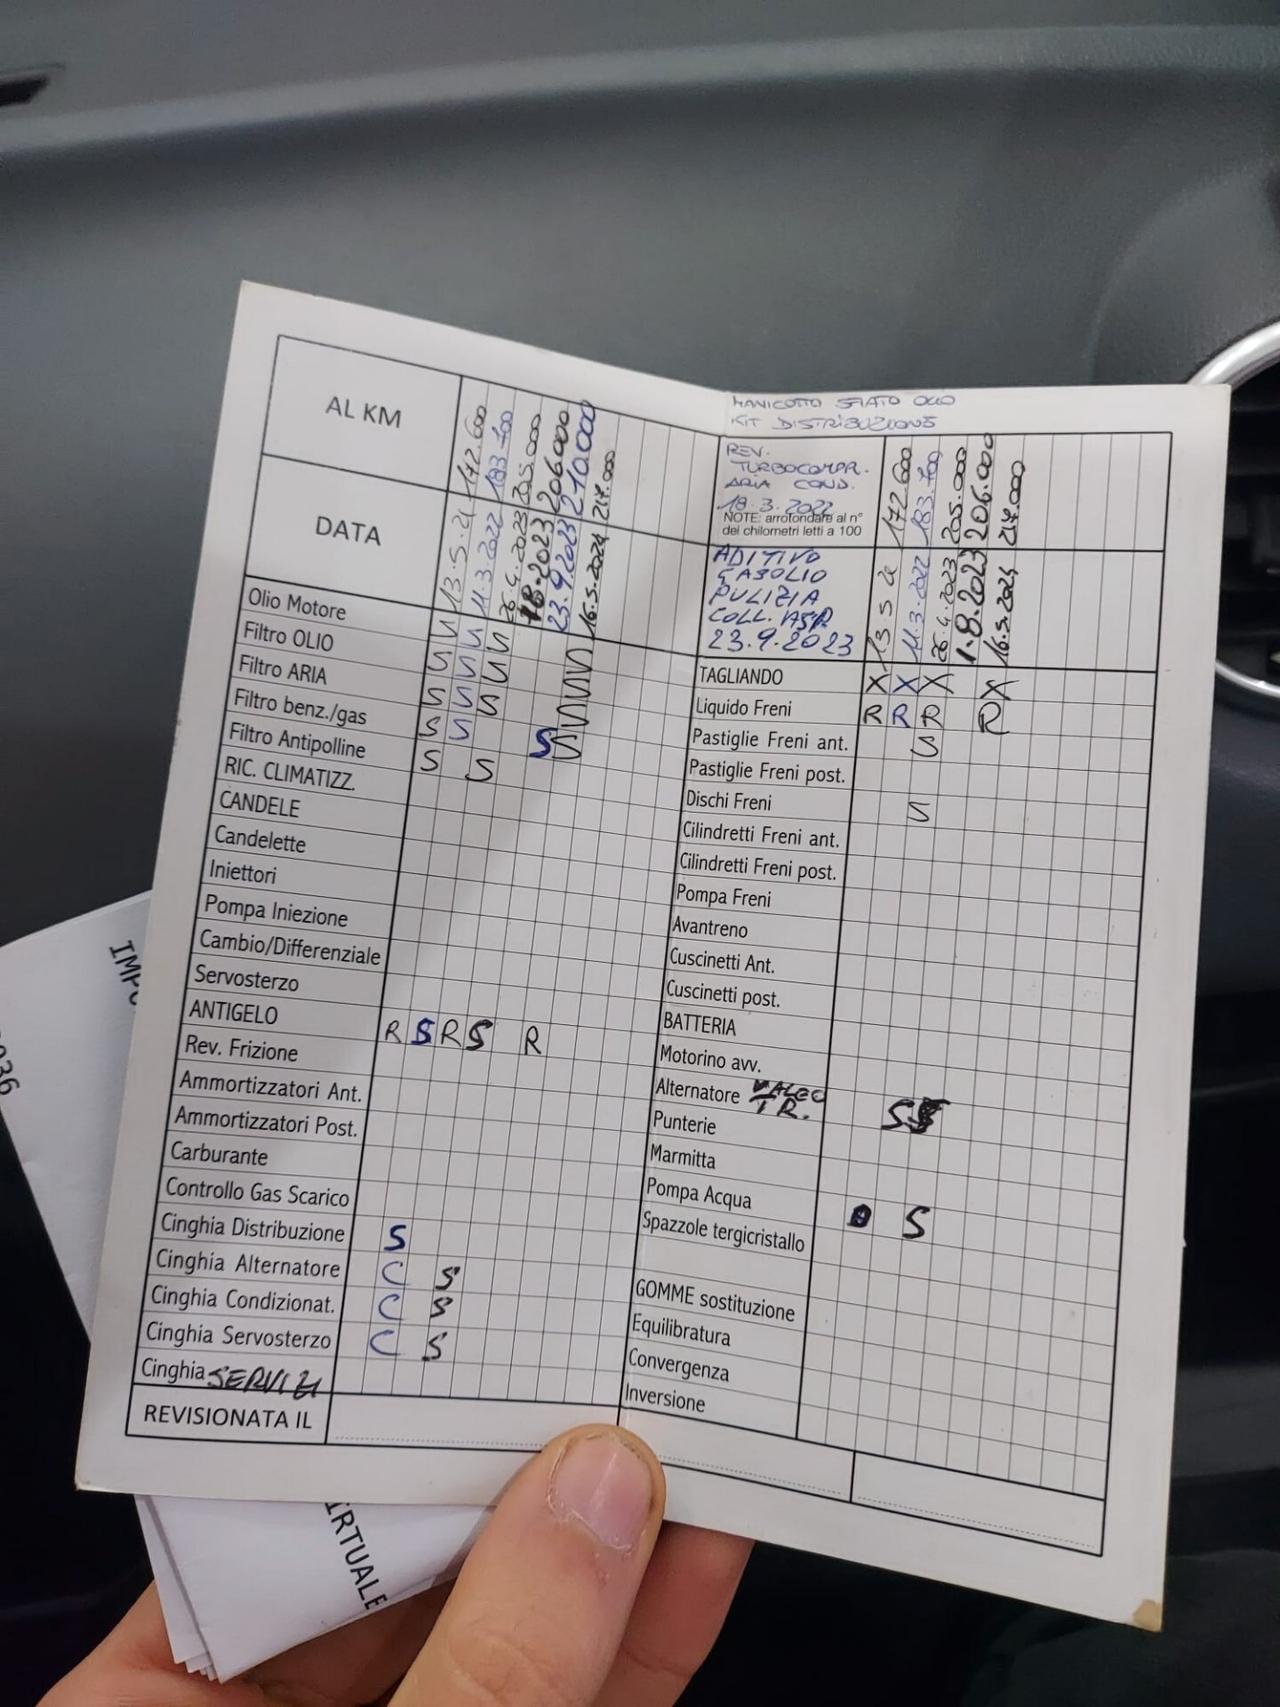 AL KM 172.600 183.700 205.000 206000 210.000 217.000
DATA 13.5.21 11.3.2022 26.4.2023 1.8.2023 23.9.2023 16.5.2024
Olio Motore S S S S
Filtro OLIO S S S S
Filtro ARIA S S S S
Filtro benz./gas S S S
Filtro Antipolline S S S S
RIC. CLIMATIZZ.
CANDELE
Candelette
Iniettori
Pompa Iniezione
Cambio/Differenziale
Servosterzo
ANTIGELO R S R S R
Rev. Frizione
Ammortizzatori Ant.
Ammortizzatori Post.
Carburante
Controllo Gas Scarico
Cinghia Distribuzione S
Cinghia Alternatore C S
Cinghia Condizionat. C S
Cinghia Servosterzo C S
Cinghia SERVIZI
REVISIONATA IL
MANICOTTO SFIATO OLIO
KIT DISTRIBUZIONE
REV.
TURBOCOMPR.
ARIA COND.
18.3.2022
NOTE: arrotondare al n°
dei chilometri letti a 100
172.600 183.700 205.000 206.000 217.000
ADITIVO
GASOLIO
PULIZIA
COLL. ASP.
23.9.2023
13 5 21 11.3.2022 26.4.2023 1.8.2023 16.5.2024
TAGLIANDO X X X X
Liquido Freni R R R R
Pastiglie Freni ant. S
Pastiglie Freni post.
Dischi Freni S
Cilindretti Freni ant.
Cilindretti Freni post.
Pompa Freni
Avantreno
Cuscinetti Ant.
Cuscinetti post.
BATTERIA
Motorino avv.
Alternatore VALEO
TR. S
Punterie
Marmitta
Pompa Acqua S
Spazzole tergicristallo
GOMME sostituzione
Equilibratura
Convergenza
Inversione
IRTUALE